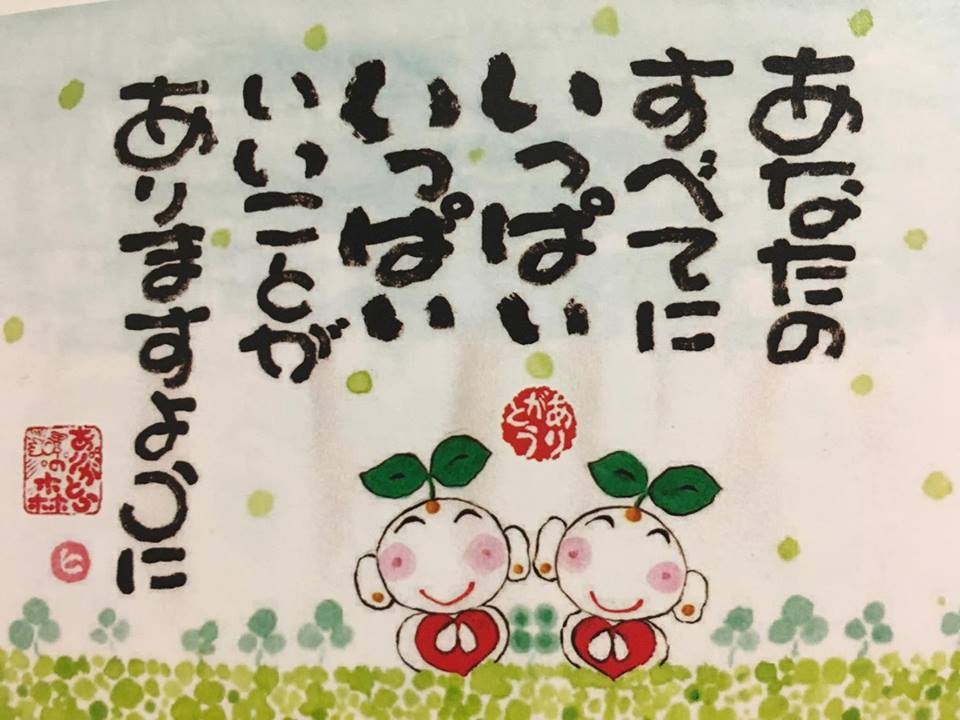 あなたの
すべてに
いっぱい
いっぱい
いいことが
ありますように
ありがとう
ありがとう
の森